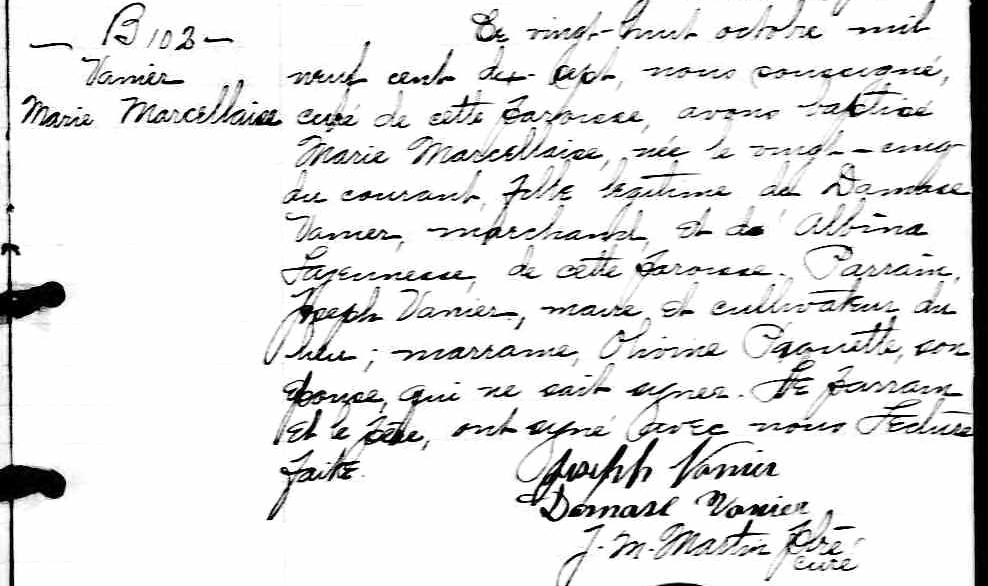 — B 102 —
Vanier
Marie Marcellaise
Le vingt-huit octobre mil
neuf cent dix-sept, nous soussigné,
curé de cette paroisse, avons baptisé
Marie Marcellaise, née le vingt-cinq
du courant, fille légitime de Damase
Vanier, marchand, et de Albina
Lajeunesse, de cette paroisse. Parrain,
Joseph Vanier, maire et cultivateur du
lieu; marraine, Olivine Paquette, son
épouse, qui ne sait signer. Le parrain
et le père, ont signé avec nous Lecture
faite.
Joseph Vanier
Damase Vanier
J. M. Martin Ptre
curé